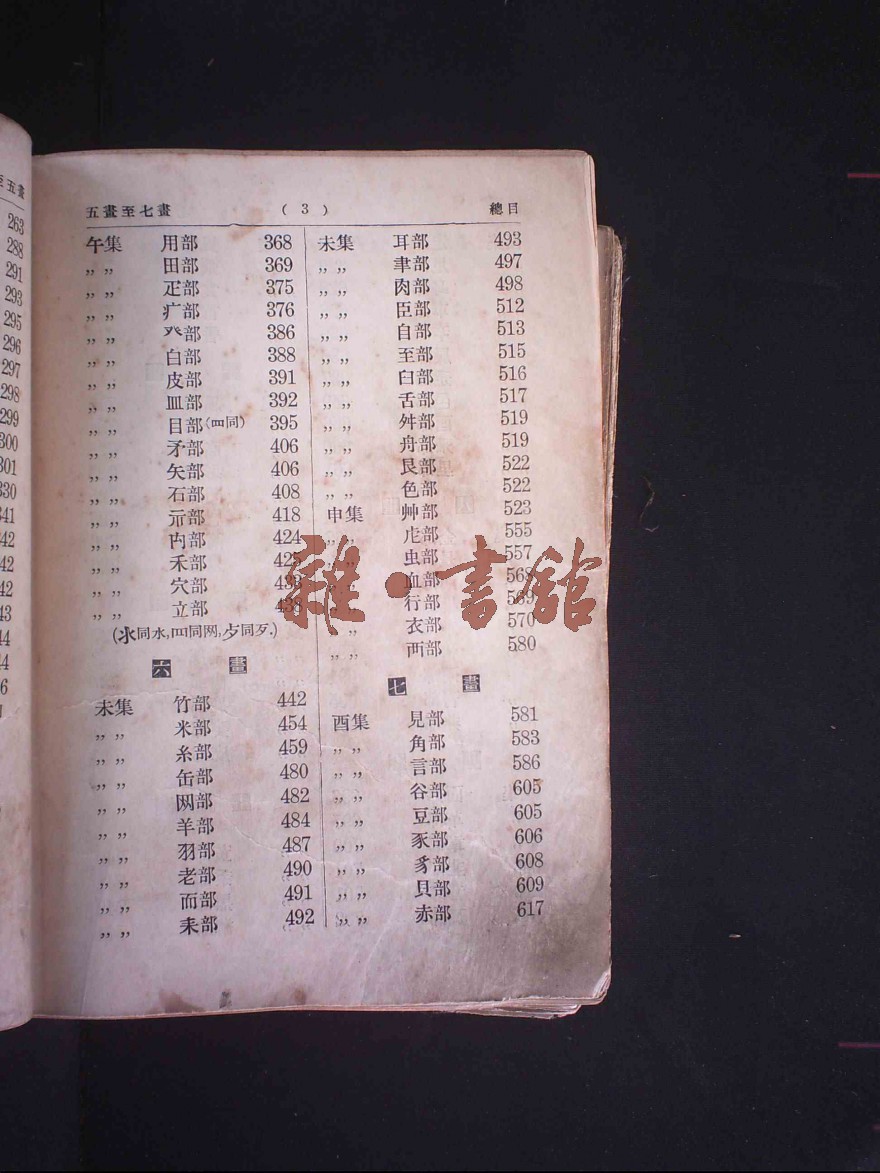 至五畫
263
288
291
293
295
296
297
298
299
300
301
330
341
五畫至七畫 ( 3 ) 總目
午集 用部 368
,, ,, 田部 369
,, ,, 疋部 375
,, ,, 疒部 376
,, ,, 癶部 386
,, ,, 白部 388
,, ,, 皮部 391
,, ,, 皿部 392
,, ,, 目部(罒同) 395
,, ,, 矛部 406
,, ,, 矢部 406
,, ,, 石部 408
,, ,, 示部 418
,, ,, 禸部 424
,, ,, 禾部 425
,, ,, 穴部
,, ,, 立部 438
(氺同水,罒同网,歺同歹.)
六畫
未集 竹部 442
,, ,, 米部 454
,, ,, 糸部 459
,, ,, 缶部 480
,, ,, 网部 482
,, ,, 羊部 484
,, ,, 羽部 487
,, ,, 老部 490
,, ,, 而部 491
,, ,, 耒部 492
未集 耳部 493
,, ,, 聿部 497
,, ,, 肉部 498
,, ,, 臣部 512
,, ,, 自部 513
,, ,, 至部 515
,, ,, 臼部 516
,, ,, 舌部 517
,, ,, 舛部 519
,, ,, 舟部 519
,, ,, 艮部 522
,, ,, 色部 522
申集 艸部 523
,, ,, 虍部 555
虫部 557
血部 568
行部 569
,, 衣部 570
,, ,, 襾部 580
七畫
酉集 見部 581
,, ,, 角部 583
,, ,, 言部 586
,, ,, 谷部 605
,, ,, 豆部 605
,, ,, 豕部 606
,, ,, 豸部 608
,, ,, 貝部 609
,, ,, 赤部 617
雜·書館